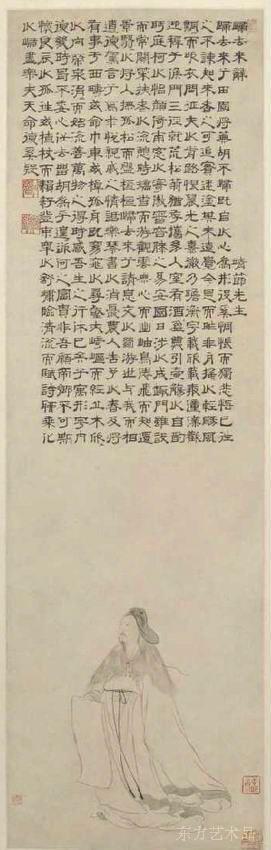 歸去來辭
靖節先生
歸去來兮田園將蕪胡不歸既自以心為形役奚惆悵而獨悲悟已往
之不諫知來者之可追實迷塗其未遠覺今是而昨非舟搖搖以輕颺風
飄飄而吹衣問征夫以前路恨晨光之熹微乃瞻衡宇載欣載奔僮僕歡
迎稚子候門三徑就荒松菊猶存攜幼入室有酒盈樽引壺觴以自酌
眄庭柯以怡顏倚南窗以寄傲審容膝之易安園日涉以成趣門雖設
而常關策扶老以流憩時矯首而遐觀雲無心而出岫鳥倦飛而知還
景翳翳以將入撫孤松而盤桓歸去來兮請息交以絕游世與我而相
違復駕言兮焉求悅親戚之情話樂琴書以消憂農人告余以春及將
有事于西疇或命巾車或棹孤舟既窈窕以尋壑亦崎嶇而經丘木欣欣
以向榮泉涓涓而始流善萬物之得時感吾生之行休已矣乎寓形宇內
復幾時曷不委心任去留胡為乎遑遑欲何之富貴非吾願帝鄉不可期
懷良辰以孤往或植杖而耘耔登東皋以舒嘯臨清流而賦詩聊乘化
以歸盡樂夫天命復奚疑
东方艺术品